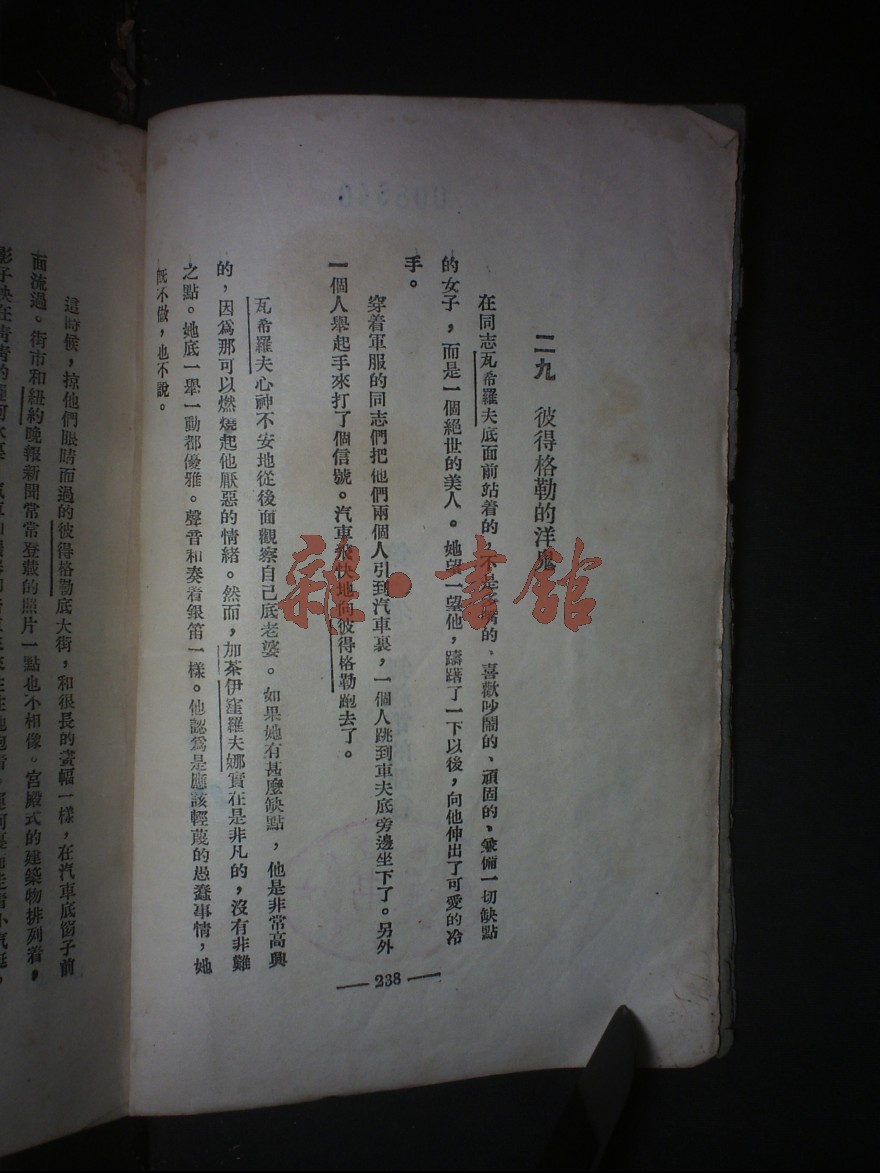 二九　彼得格勒的洋鬼
在同志瓦希羅夫底面前站着的，不是 的、喜歡吵鬧的、頑固的、兼備一切缺點
的女子，而是一個絕世的美人。她望一望他，躊躇了一下以後，向他伸出了可愛的冷
手。
穿着軍服的同志們把他們兩個人引到汽車裏，一個人跳到車夫底旁邊坐下了。另外
一個人舉起手來打了個信號。汽車飛快地向彼得格勒跑去了。
瓦希羅夫心神不安地從後面觀察自己底老婆。如果她有甚麼缺點，他是非常高興
的，因爲那可以燃燒起他厭惡的情緒。然而，加茶伊窪羅夫娜實在是非凡的，沒有非難
之點。她底一舉一動都優雅。聲音和奏着銀笛一樣。他認爲是應該輕蔑的愚蠢事情，她
既不做，也不說。
238
這時候，掠他們眼睛而過的彼得格勒底大街，和很長的畫幅一樣，在汽車底窗子前
面流過。街市和紐約晚報新聞常常登載的照片一點也不相像。宮殿式的建築物排列着，
影子映在青青的運河水裏
008346
雜·書館